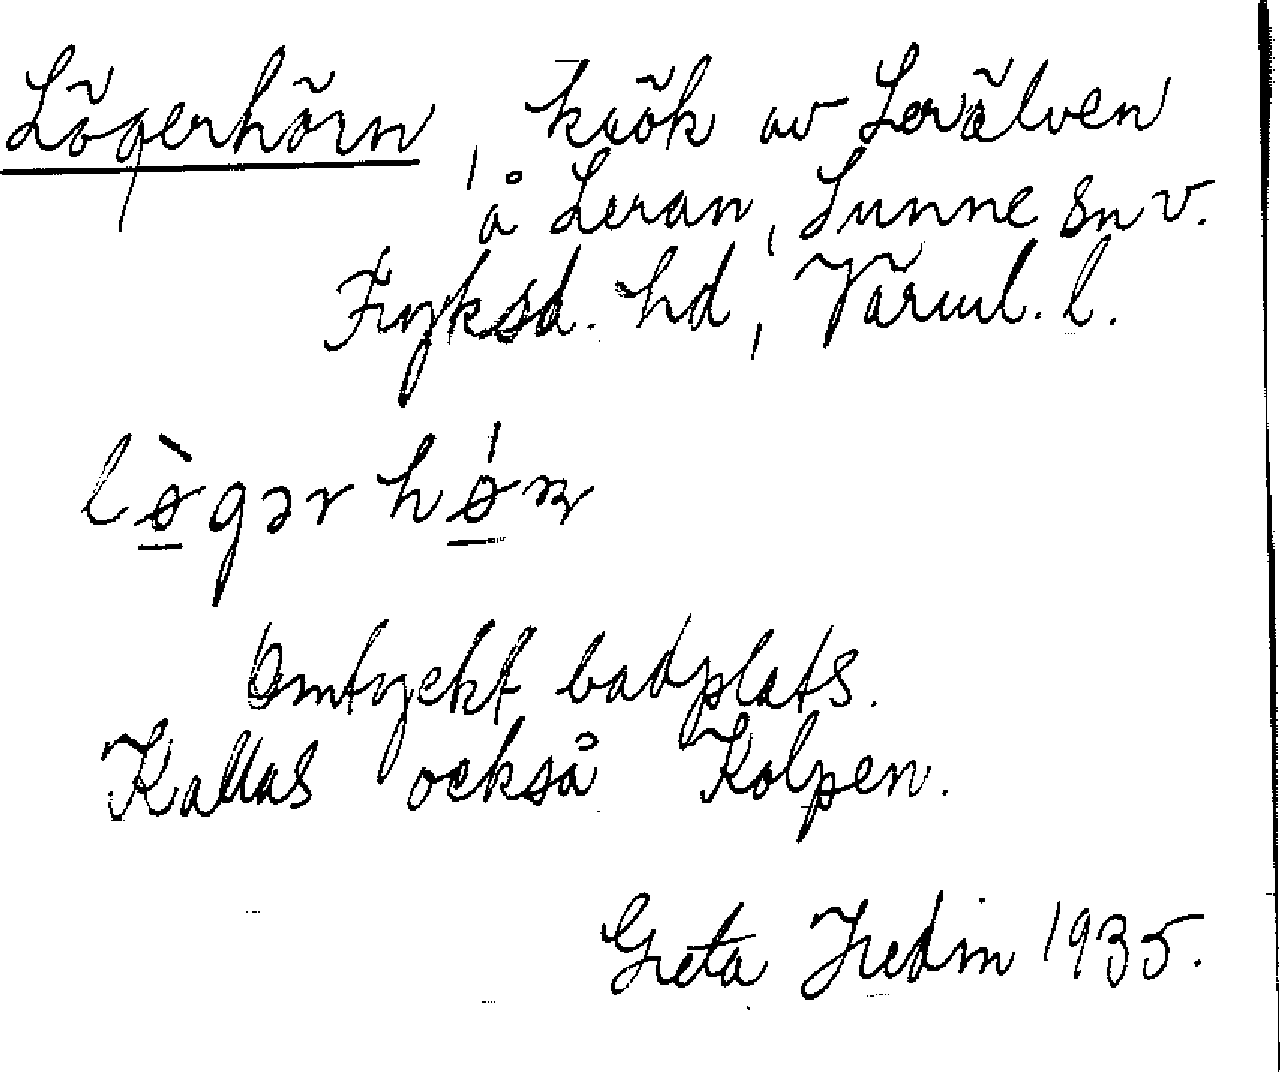 Lögerhörn, krök av Lerälven
å Leran, Sunne sn v.
Fryksd. hd, Värml. l.
lø̀gər hǿɳ
Omtyckt badplats.
Kallas också Kolpen.
Greta Hedin 1935.